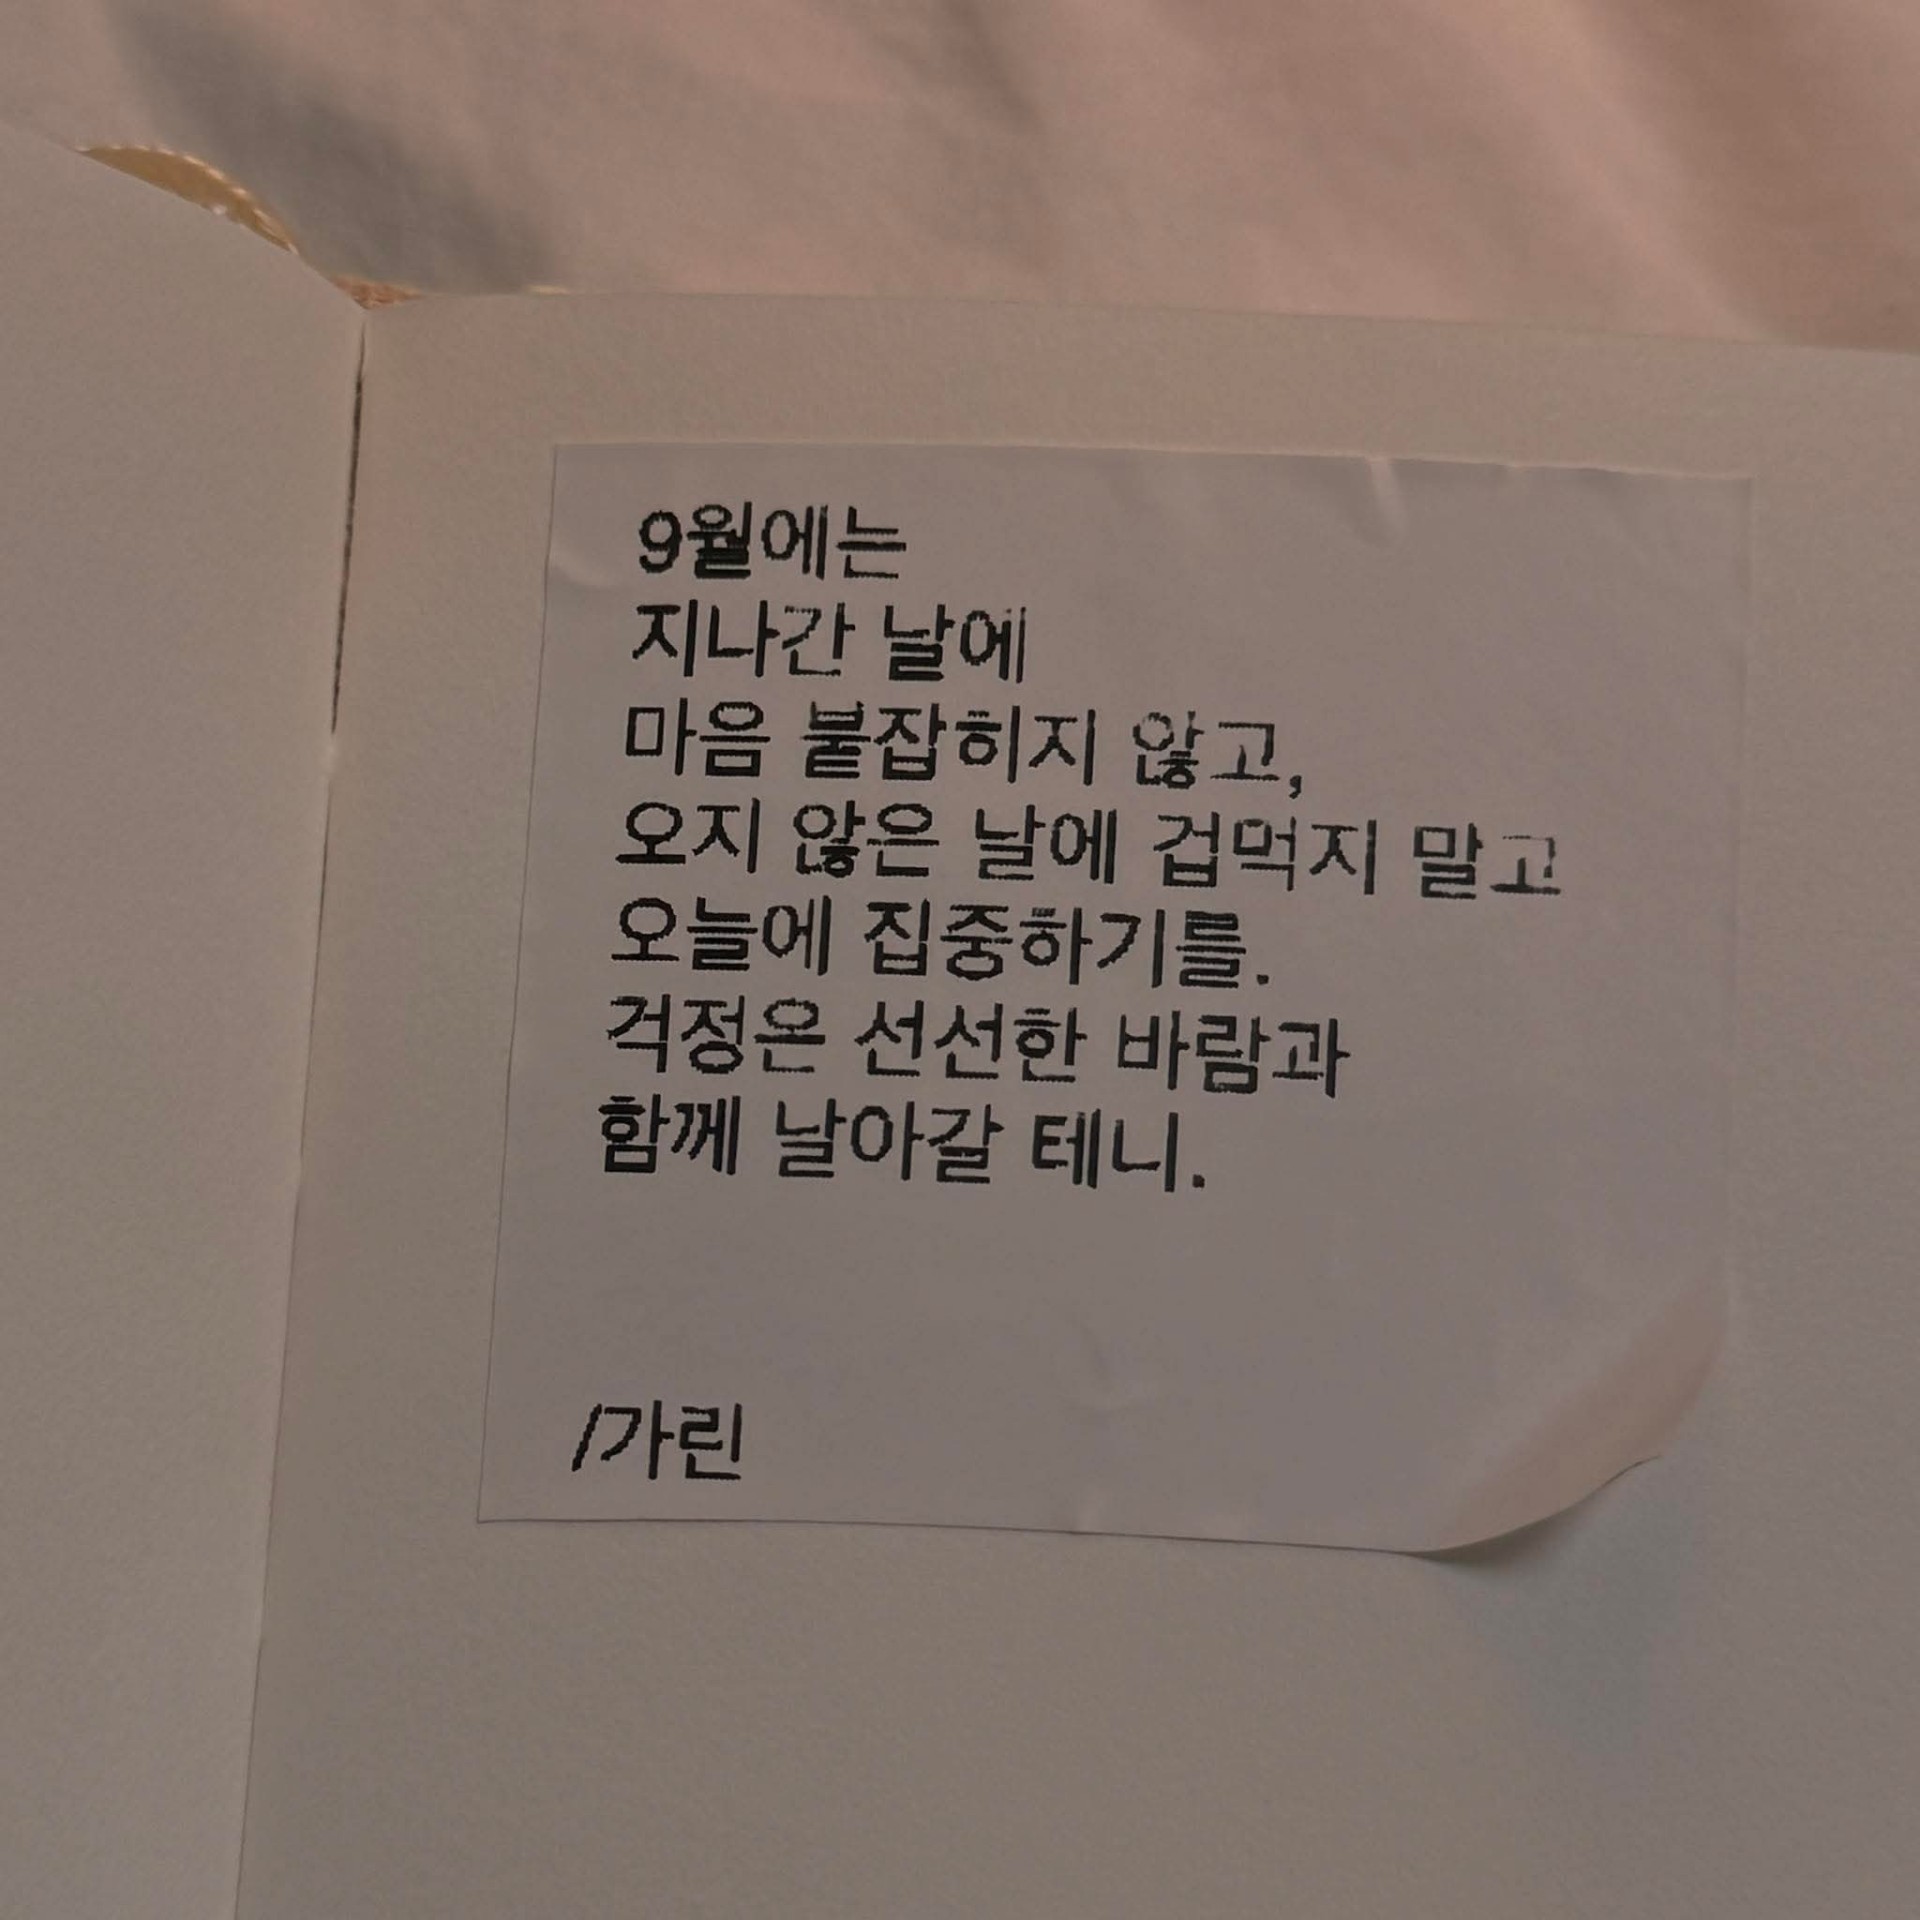 9월에는
지나간 날에
마음 붙잡히지 않고,
오지 않은 날에 겁먹지 말고
오늘에 집중하기를.
걱정은 선선한 바람과
함께 날아갈 테니.
/가린